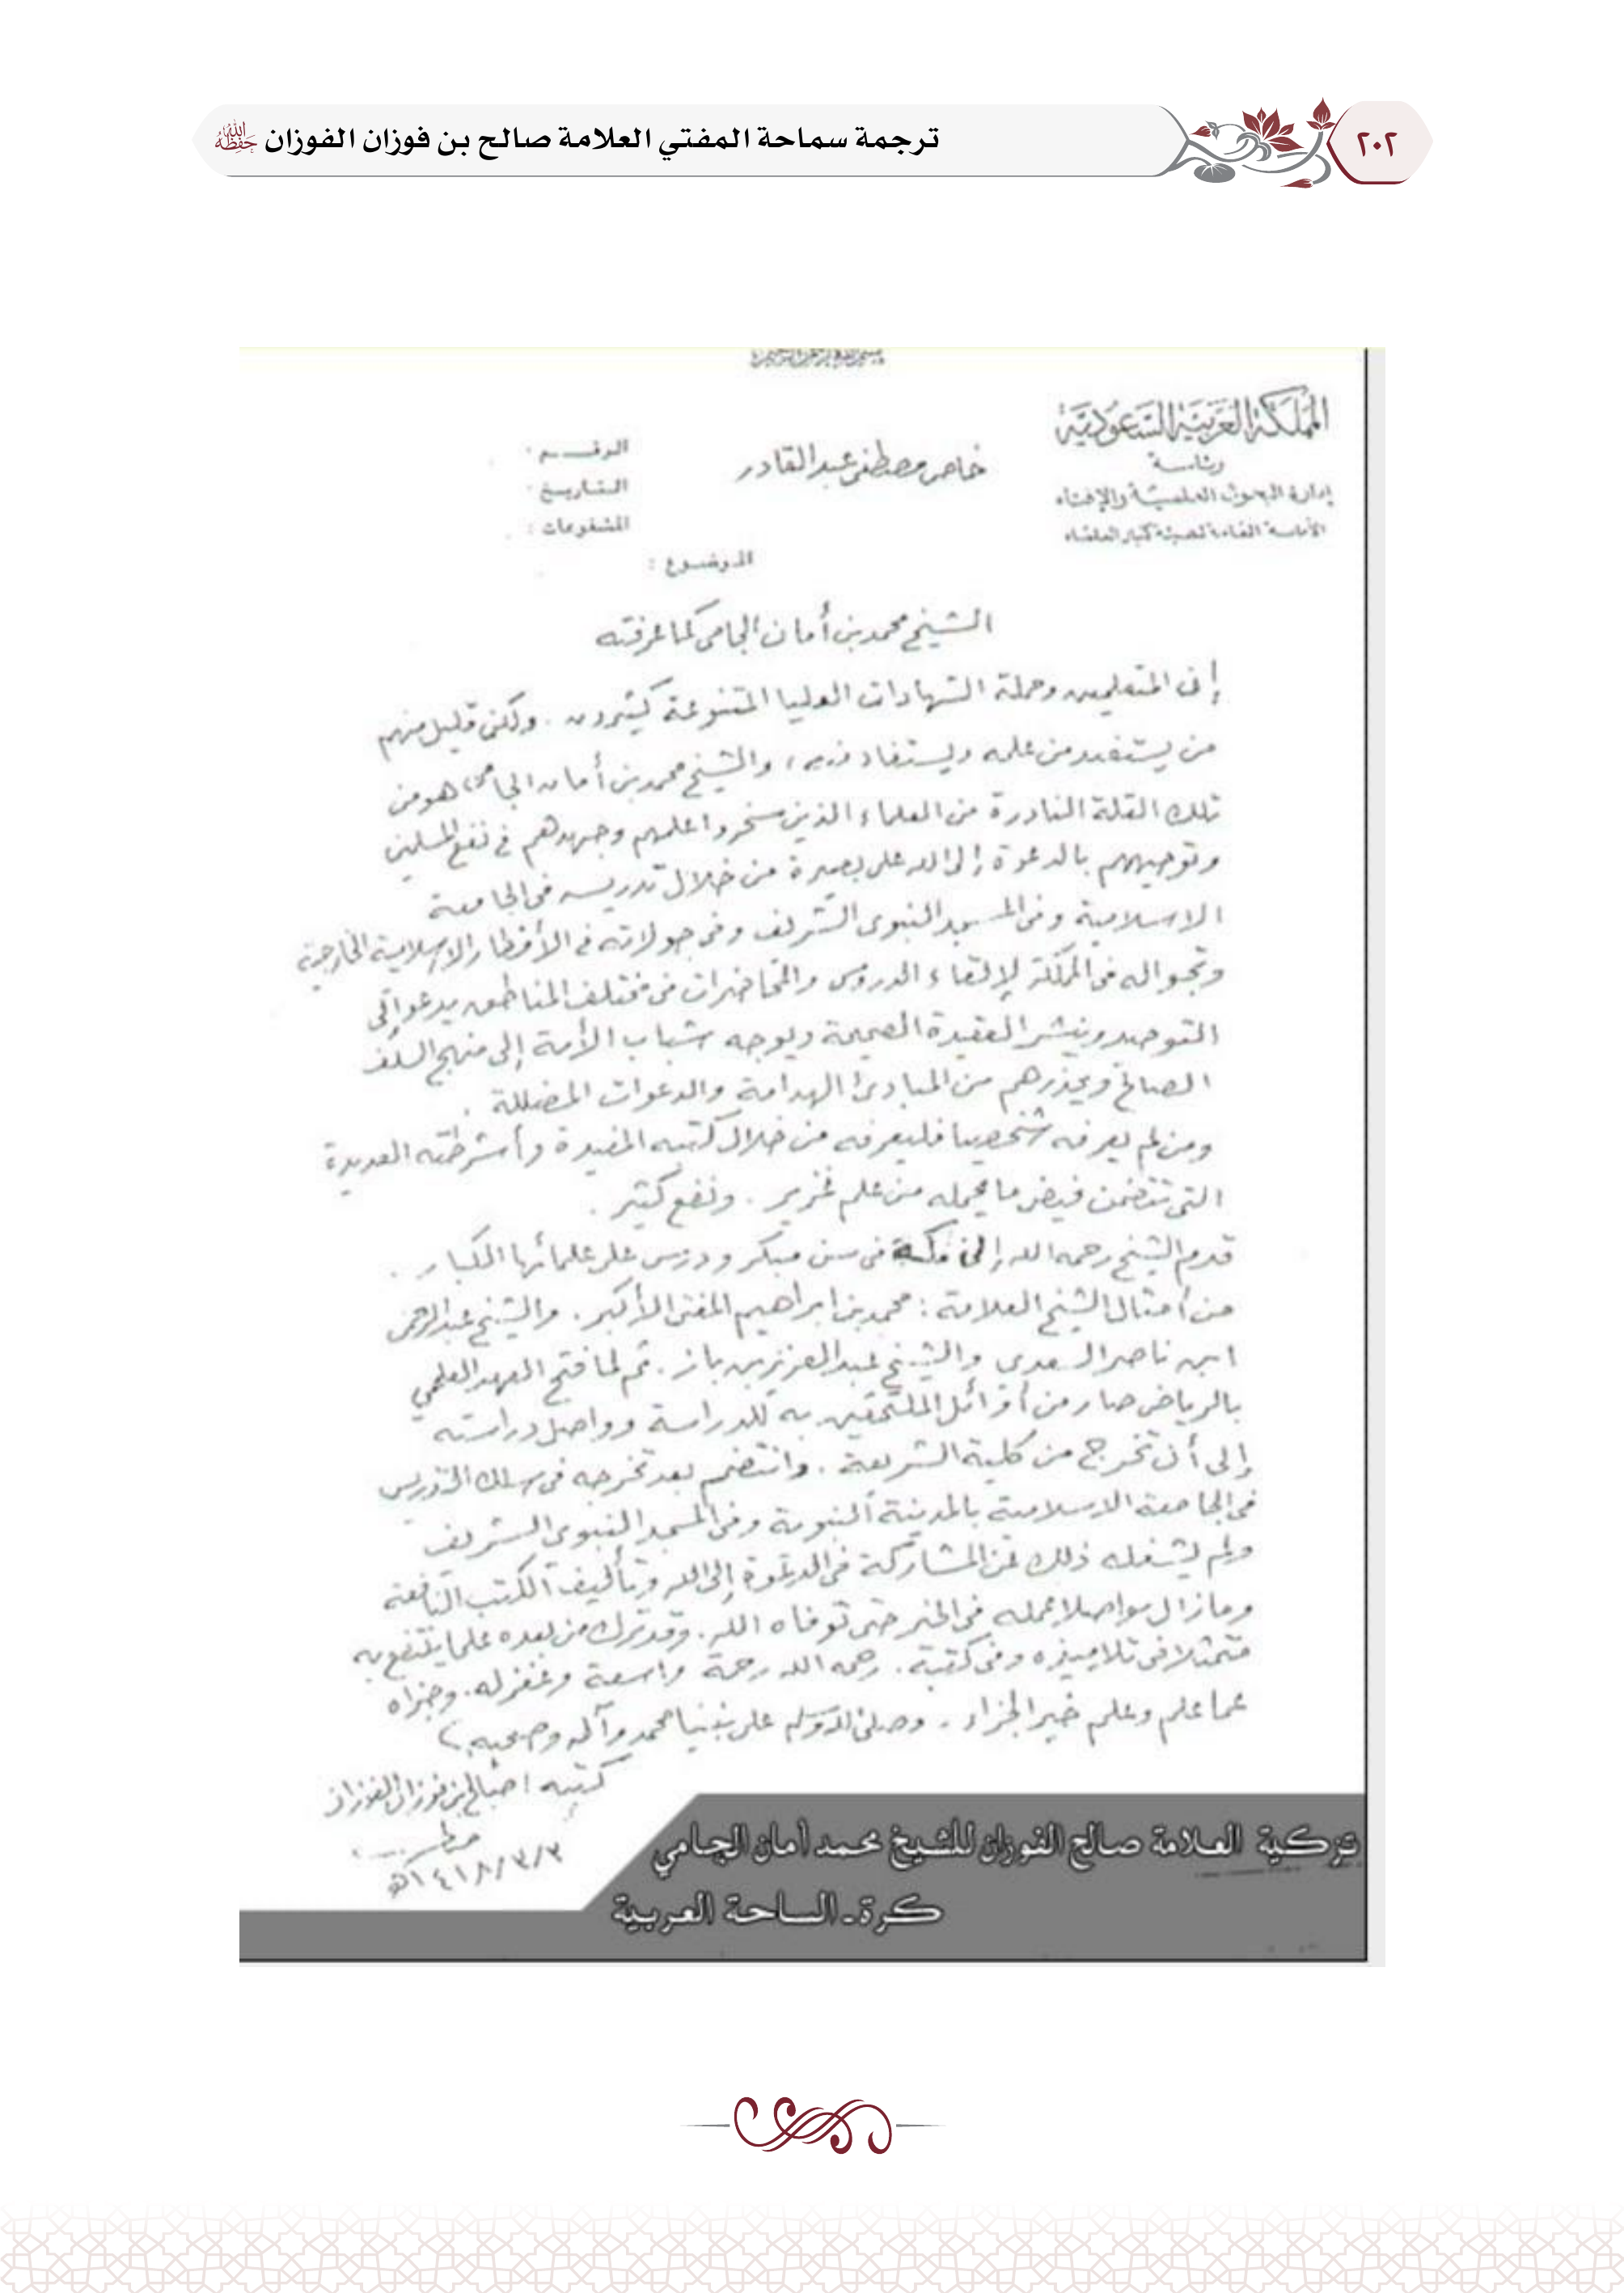 ٢٠٢
ترجمة سماحة المفتي العلامة صالح بن فوزان الفوزان حَفِظَهُ اللهُ
المملكة العربية السعودية
رئاسة
إدارة البحوث العلمية والإفتاء
الأمانة العامة لهيئة كبار العلماء
خاص مصطفى عبد القادر
الرقم :
التاريخ :
المشفوعات :
الموضوع :
الشيخ محمد بن أمان الجامي كما عرفته
إن المتعلمين وحملة الشهادات العليا المتنوعة كثيرون . ولكن قليل منهم
من يستفيد من علمه ويستفاد منه ، والشيخ محمد بن أمان الجامي هو من
تلك القلة النادرة من العلماء الذين سخروا علمهم وجهدهم في نفع المسلمين
وتوجيههم بالدعوة إلى الله على بصيرة من خلال تدريسه في الجامعة
الاسلامية وفي المسجد النبوي الشريف وفي جولاته في الأقطار الإسلامية الخارجية
وتجواله في المملكة لإلقاء الدروس والمحاضرات في مختلف المناطق يدعو إلى
التوحيد وينشر العقيدة الصحيحة ويوجه شباب الأمة إلى منهج السلف
الصالح ويحذرهم من المبادئ الهدامة والدعوات المضللة .
ومن لم يعرفه شخصيا فليعرفه من خلال كتبه المفيدة وأشرطته العديدة
التي تتضمن فيض ما يحمله من علم غزير . ونفع كثير .
قدم الشيخ رحمه الله إلى مكة في سن مبكر ودرس على علمائها الكبار .
من أمثال الشيخ العلامة : محمد بن ابراهيم المفتي الأكبر . والشيخ عبد الرحمن
ابن ناصر السعدي والشيخ عبد العزيز بن باز . ثم لما فتح المعهد العلمي
بالرياض صار من أوائل الملتحقين به للدراسة وواصل دراسته
إلى أن تخرج من كلية الشريعة . وانتضم بعد تخرجه في سلك التدريس
في الجامعة الاسلامية بالمدينة النبوية وفي المسجد النبوي الشريف
ولم يشغله ذلك عن المشاركة في الدعوة إلى الله وتأليف الكتب النافعة
وما زال مواصلا عمله في الخير حتى توفاه الله . وقد ترك من بعده علما ينتفع به
متمثلا في تلاميذه وفي كتبه . رحمه الله رحمة واسعة وغفر له . وجزاه
عما علم وعلم خير الجزاء . وصلى الله وسلم على نبينا محمد وآله وصحبه
كتبه : صالح بن فوزان الفوزان
١٤١٨/٣/٣هـ
تزكية العلامة صالح الفوزان للشيخ محمد أمان الجامي
كرة - الساحة العربية